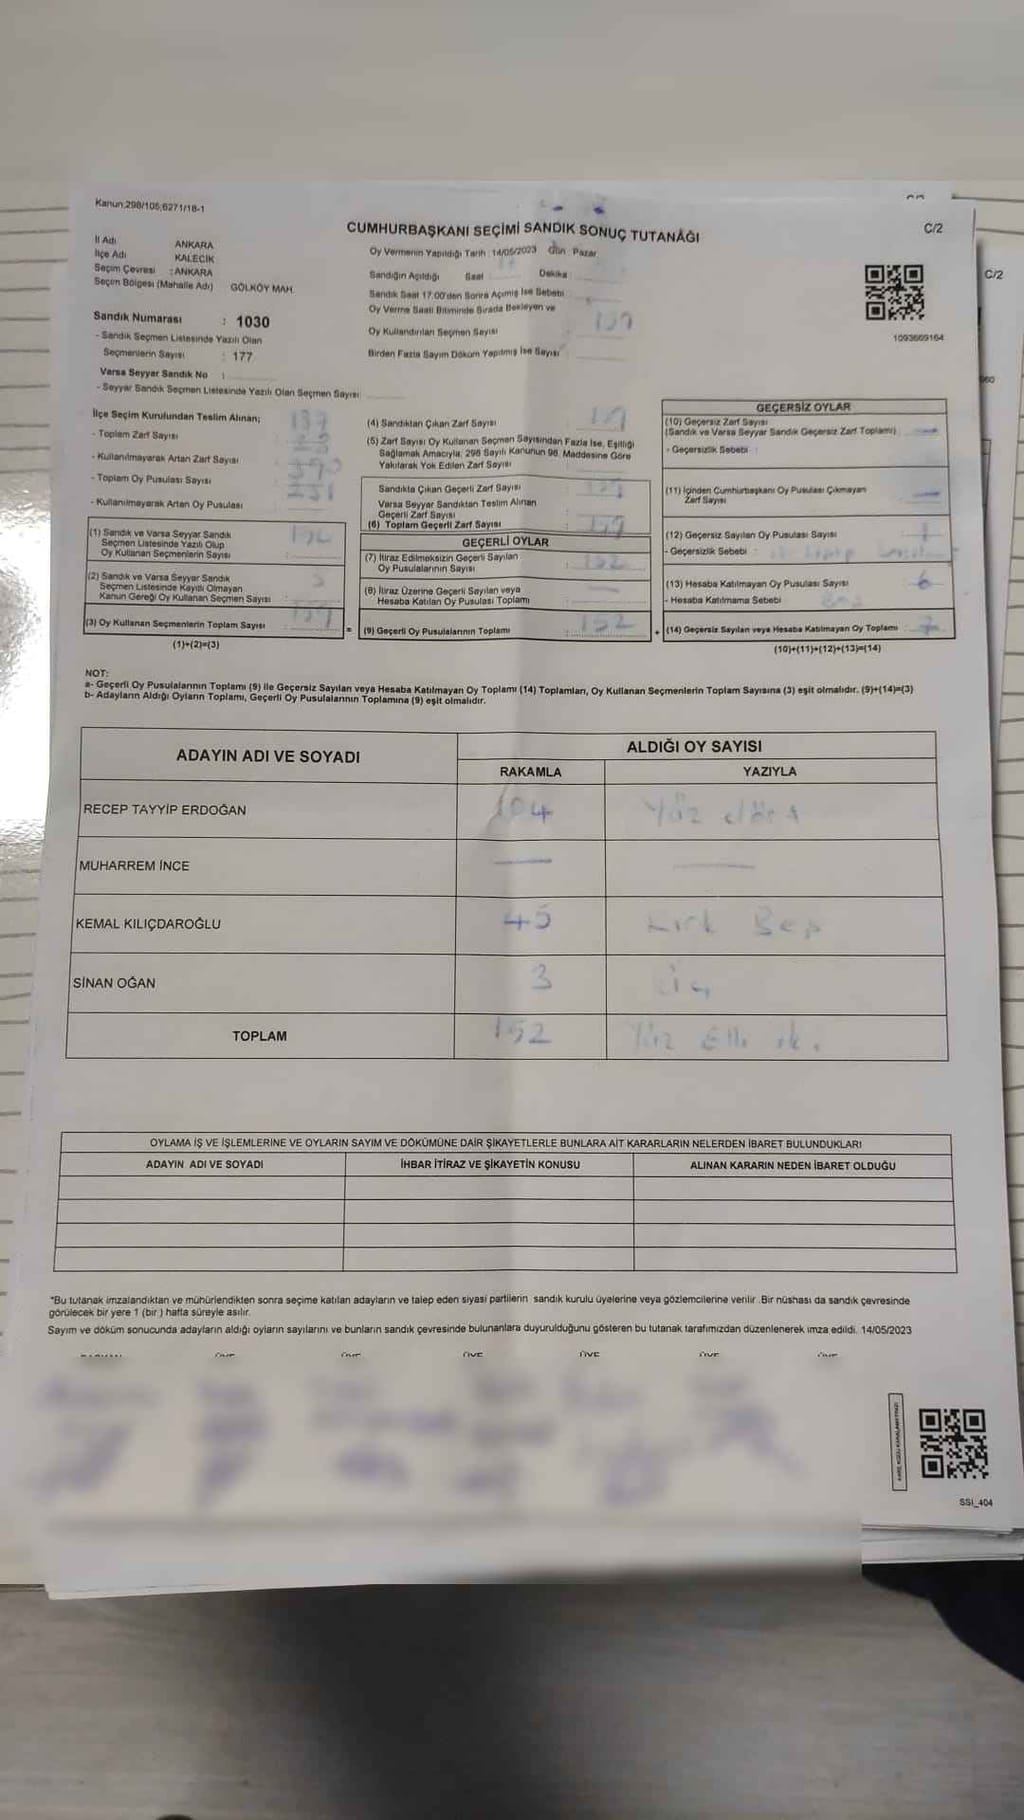 Kanun:298/105;6271/18-1
C/2
CUMHURBAŞKANI SEÇİMİ SANDIK SONUÇ TUTANAĞI
İl Adı ANKARA
İlçe Adı KALECİK
Seçim Çevresi : ANKARA
Seçim Bölgesi (Mahalle Adı) GÖLKÖY MAH.
Sandık Numarası : 1030
- Sandık Seçmen Listesinde Yazılı Olan
Seçmenlerin Sayısı : 177
Varsa Seyyar Sandık No :
- Seyyar Sandık Seçmen Listesinde Yazılı Olan Seçmen Sayısı:
Oy Vermenin Yapıldığı Tarih : 14/05/2023 Gün : Pazar
Sandığın Açıldığı Saat Dakika :
Sandık Saat 17:00'den Sonra Açılmış İse Sebebi
Oy Verme Saati Bitiminde Sırada Bekleyen ve
Oy Kullandırılan Seçmen Sayısı
Birden Fazla Sayım Döküm Yapılmış İse Sayısı
1093669164
C/2
İlçe Seçim Kurulundan Teslim Alınan;
- Toplam Zarf Sayısı
- Kullanılmayarak Artan Zarf Sayısı
- Toplam Oy Pusulası Sayısı
- Kullanılmayarak Artan Oy Pusulası
(1) Sandık ve Varsa Seyyar Sandık
Seçmen Listesinde Yazılı Olup
Oy Kullanan Seçmenlerin Sayısı
(2) Sandık ve Varsa Seyyar Sandık
Seçmen Listesinde Kayıtlı Olmayan
Kanun Gereği Oy Kullanan Seçmen Sayısı
(3) Oy Kullanan Seçmenlerin Toplam Sayısı 159
(1)+(2)=(3)
(4) Sandıktan Çıkan Zarf Sayısı
(5) Zarf Sayısı Oy Kullanan Seçmen Sayısından Fazla İse, Eşitliği
Sağlamak Amacıyla, 298 Sayılı Kanunun 98. Maddesine Göre
Yakılarak Yok Edilen Zarf Sayısı
Sandıkta Çıkan Geçerli Zarf Sayısı
Varsa Seyyar Sandıktan Teslim Alınan
Geçerli Zarf Sayısı
(6) Toplam Geçerli Zarf Sayısı 159
GEÇERLİ OYLAR
(7) İtiraz Edilmeksizin Geçerli Sayılan
Oy Pusulalarının Sayısı 152
(8) İtiraz Üzerine Geçerli Sayılan veya
Hesaba Katılan Oy Pusulası Toplamı —
(9) Geçerli Oy Pusulalarının Toplamı 152
GEÇERSİZ OYLAR
(10) Geçersiz Zarf Sayısı
(Sandık ve Varsa Seyyar Sandık Geçersiz Zarf Toplamı) —
- Geçersizlik Sebebi :
(11) İçinden Cumhurbaşkanı Oy Pusulası Çıkmayan
Zarf Sayısı —
(12) Geçersiz Sayılan Oy Pusulası Sayısı 1
- Geçersizlik Sebebi :
(13) Hesaba Katılmayan Oy Pusulası Sayısı 6
- Hesaba Katılmama Sebebi
(14) Geçersiz Sayılan veya Hesaba Katılmayan Oy Toplamı 7
(10)+(11)+(12)+(13)=(14)
NOT:
a- Geçerli Oy Pusulalarının Toplamı (9) ile Geçersiz Sayılan veya Hesaba Katılmayan Oy Toplamı (14) Toplamları, Oy Kullanan Seçmenlerin Toplam Sayısına (3) eşit olmalıdır. (9)+(14)=(3)
b- Adayların Aldığı Oyların Toplamı, Geçerli Oy Pusulalarının Toplamına (9) eşit olmalıdır.
ADAYIN ADI VE SOYADI ALDIĞI OY SAYISI
RAKAMLA YAZIYLA
RECEP TAYYİP ERDOĞAN 104 Yüz dört
MUHARREM İNCE — —
KEMAL KILIÇDAROĞLU 45 Kırk Beş
SİNAN OĞAN 3 üç
TOPLAM 152 Yüz Elli iki
OYLAMA İŞ VE İŞLEMLERİNE VE OYLARIN SAYIM VE DÖKÜMÜNE DAİR ŞİKAYETLERLE BUNLARA AİT KARARLARIN NELERDEN İBARET BULUNDUKLARI
ADAYIN ADI VE SOYADI İHBAR İTİRAZ VE ŞİKAYETİN KONUSU ALINAN KARARIN NEDEN İBARET OLDUĞU
*Bu tutanak imzalandıktan ve mühürlendikten sonra seçime katılan adayların ve talep eden siyasi partilerin sandık kurulu üyelerine veya gözlemcilerine verilir .Bir nüshası da sandık çevresinde
görülecek bir yere 1 (bir ) hafta süreyle asılır.
Sayım ve döküm sonucunda adayların aldığı oyların sayılarını ve bunların sandık çevresinde bulunanlara duyurulduğunu gösteren bu tutanak tarafımızdan düzenlenerek imza edildi. 14/05/2023
ÜYE ÜYE ÜYE
SSI_404